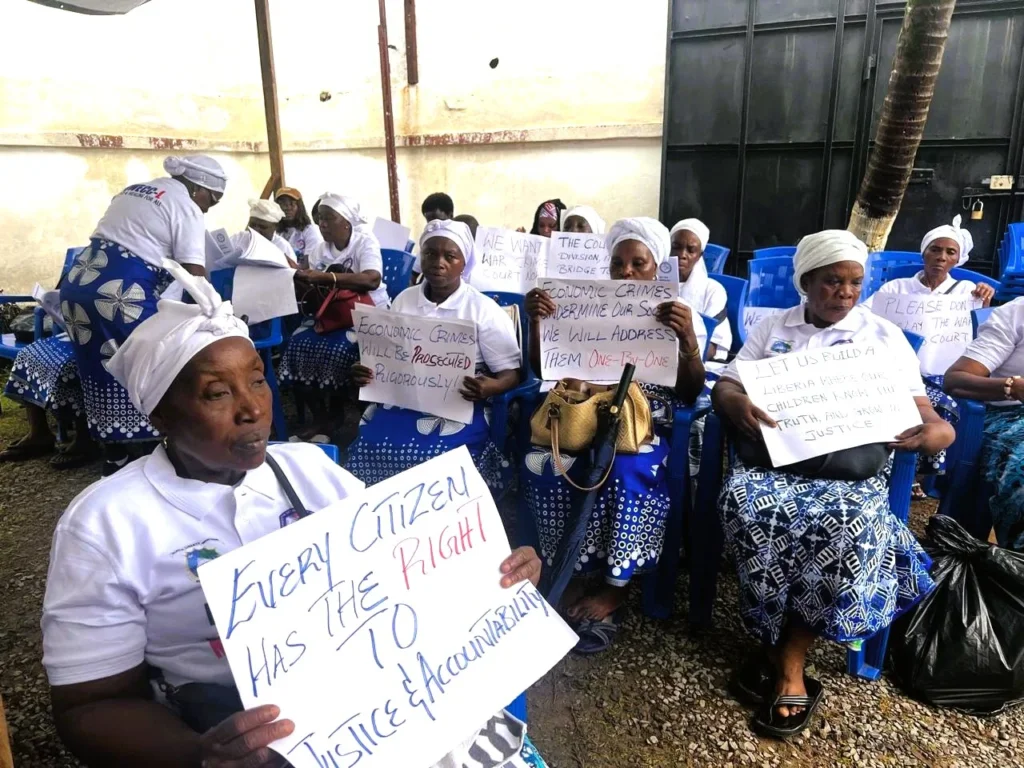 EVERY CITIZEN
HAS THE RIGHT
TO
JUSTICE & ACCOUNTABILITY
ECONOMIC CRIMES
WILL BE PROSECUTED
RIGOROUSLY!
WE WANT
WAR
COURT NOW
THE COU
DIVISION,
BRIDGE TO
ECONOMIC CRIMES
UNDERMINE OUR SOC
WE WILL ADDRESS
THEM ONE-BY-ONE
LET US BUILD A
LIBERIA WHERE OUR
CHILDREN KNOW
TRUTH, AND
JUSTICE
PLEASE DON
LAY THE WAR
COURT
FOR ALL